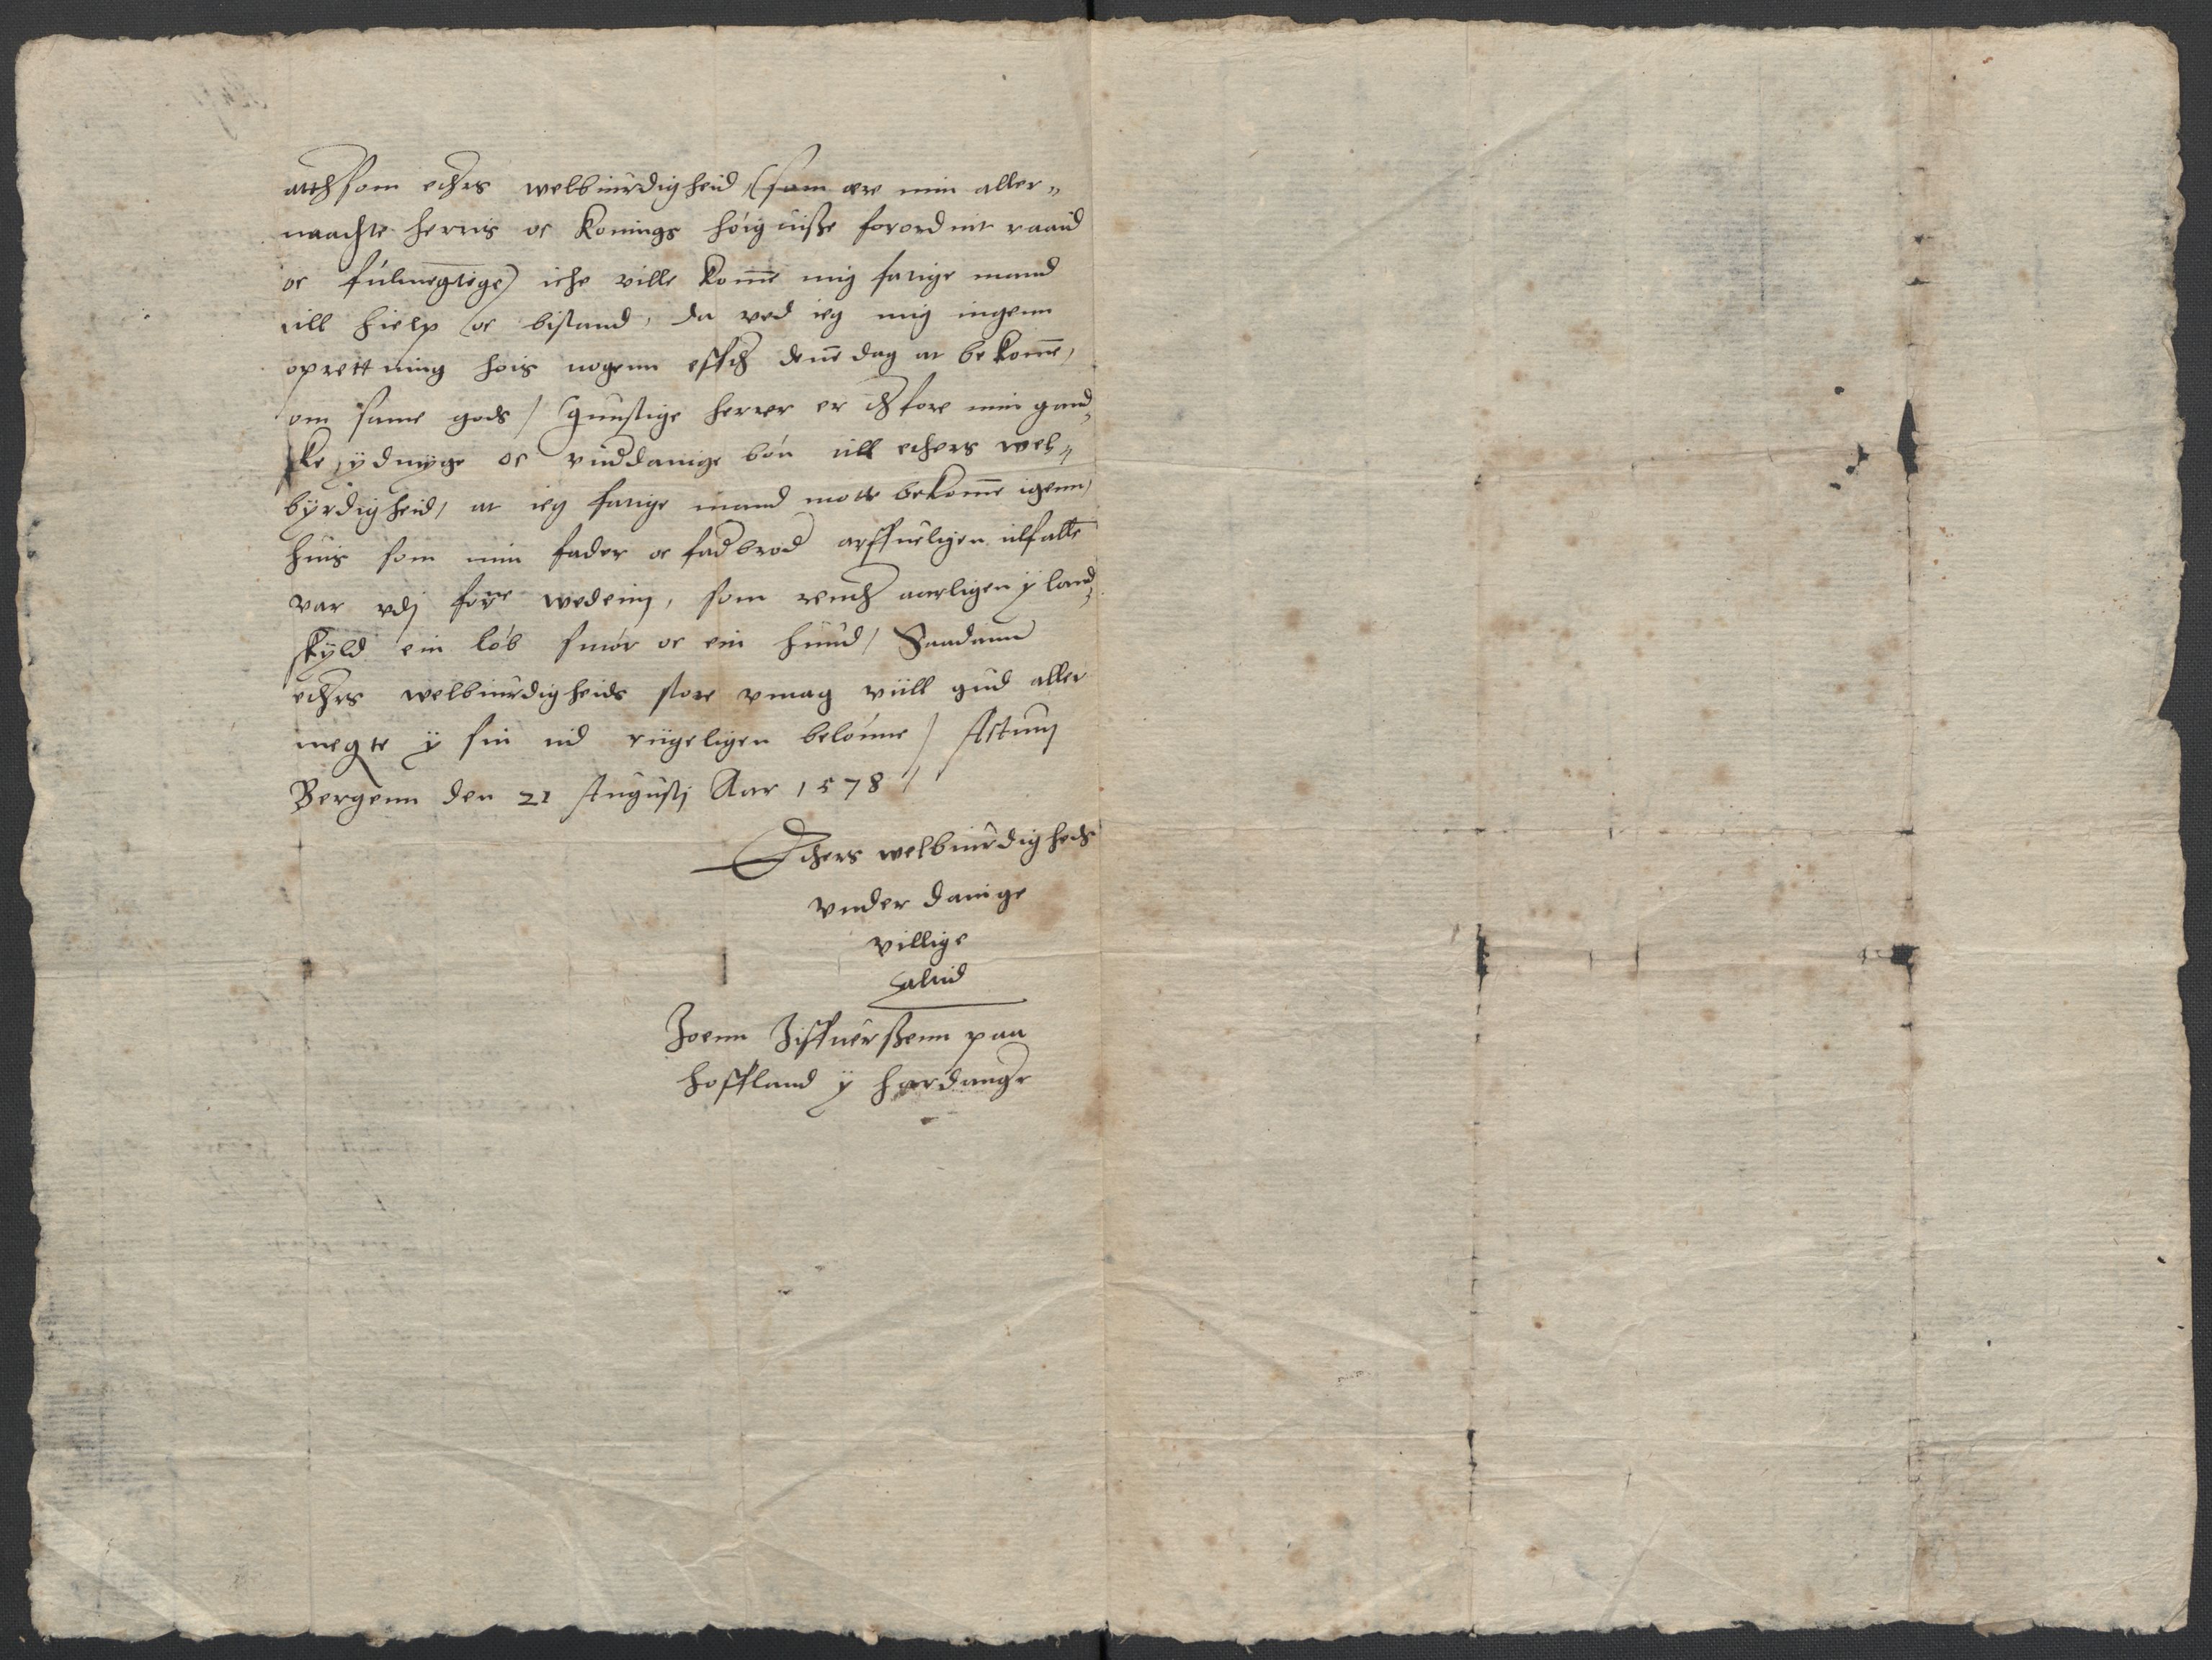 atthsom echers welbiurdigheid (som ere min aller„
naadiste herris oc Konings höiguisße forordnit raaid
oc fulmegtige) iche ville komme mig fatige mand
till hielp oc bistand, da ved ieg mig ingenn
oprettning hois nogenn effther denne dag at bekomme,
om same gods / Gunstige herrer er therfore min gand„
ske ydmyge oc vnddanige bön till echers wel„
byrdigheid, at ieg fatige mand motte bekomme igenn,
huis som min fader oc fadbrod arffueligen tilfalt
var vdj forne wedeim, som renther aarligen y land„
skyld ein löb smör oc ein huud / Saadanne
echers welbiurdigheids store vmag viill gud aller
megte y sin tid riigeligen belönne / Actum
Bergenn den 21 Augustj Aar 1578 //
Echers welbiurdigheds
vnder danige
villige
altid
Joenn Jiffuersßenn paa
hoffland y hardanger